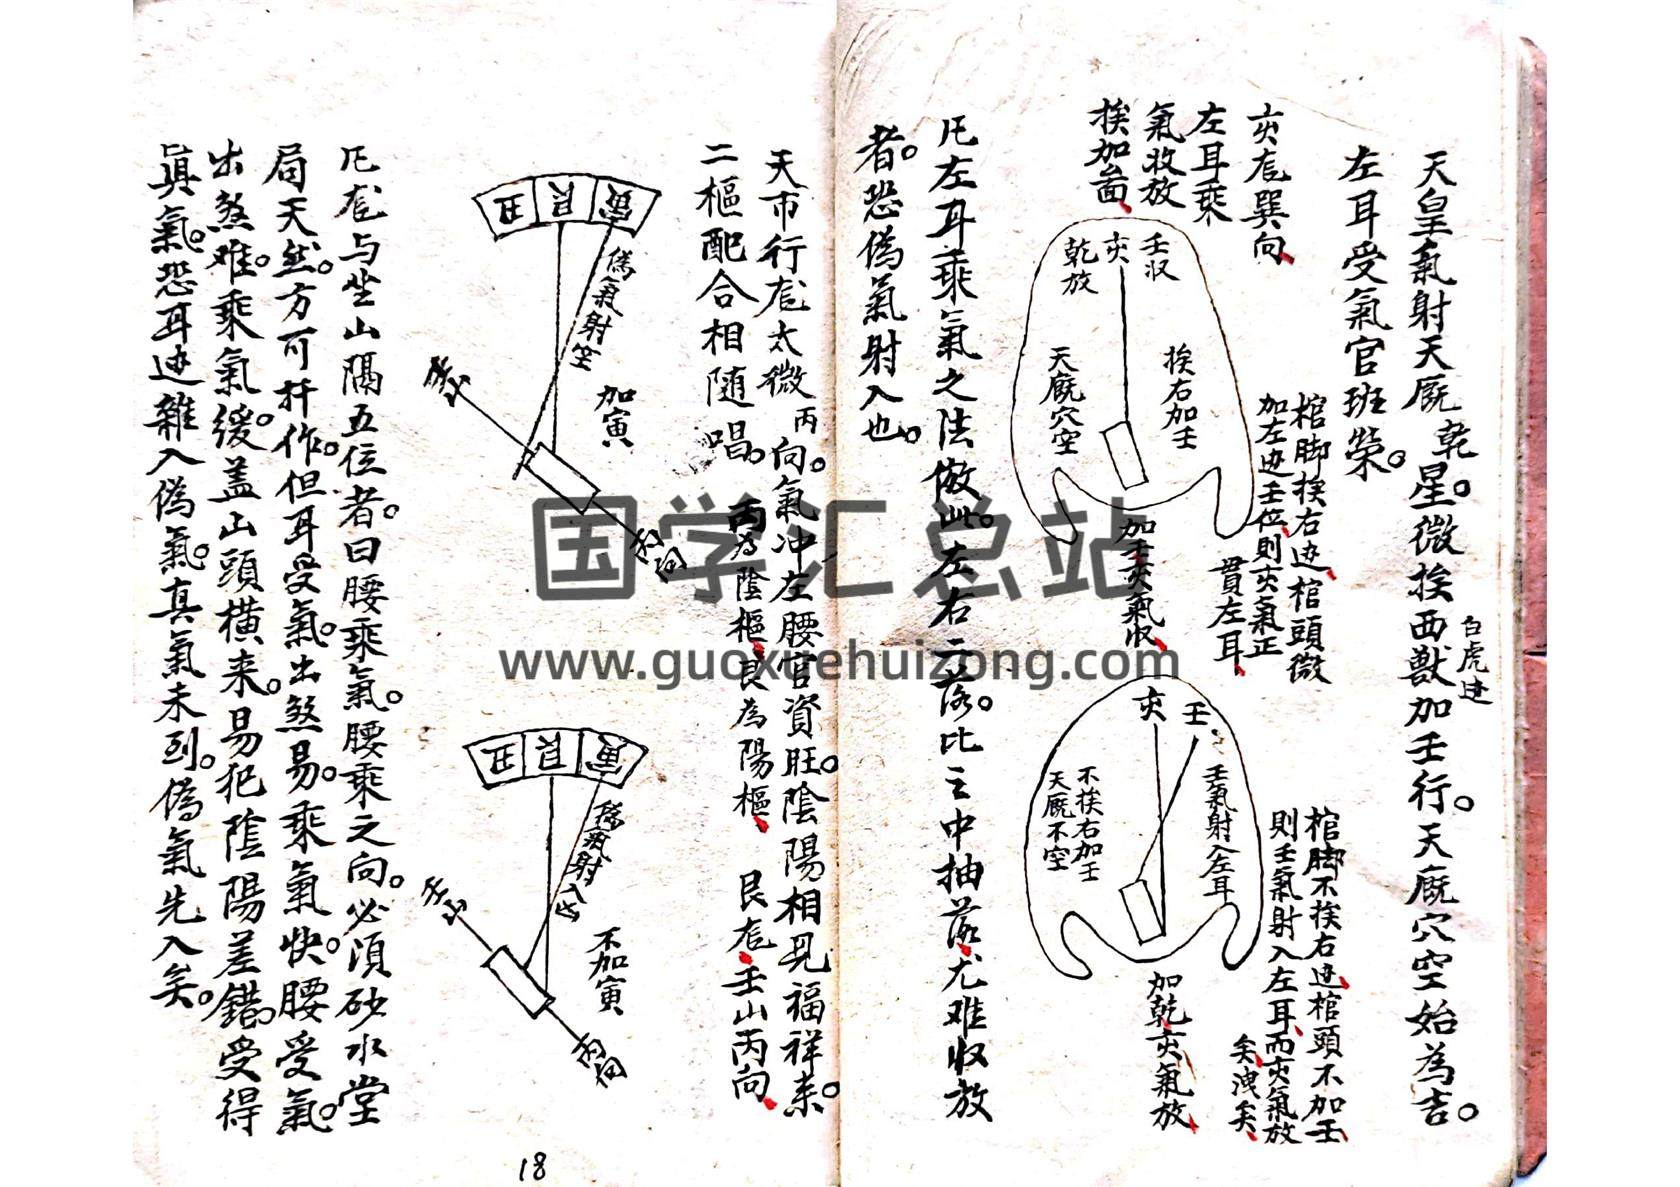 天皇氣射天廐乾星。微挨西獸加壬行。天廐穴空始為吉。
白虎边
左耳受氣官班榮。
亥龙巽向
左耳乘
氣收放
挨加畐
壬収
亥
乾放
挨右加壬
天廐穴空
棺脚挨右边棺頭微
加左边壬位則亥氣正
貫左耳
加壬亥氣収
亥
壬
壬氣射入左耳
不挨右加壬
天廐不空
棺脚不挨右边棺頭不加壬
則壬氣射入左耳而亥氣放
矣洩矣
加乾亥氣放
凡左耳乘氣之法倣此。左右二落。比之中抽落尤难収放
者。恐偽氣射入也。
天市行龙太微丙向。氣冲左腰官資旺。陰陽相見福祥来。
二樞配合相随唱。
丙為陰樞艮為陽樞
艮龙壬山丙向
丑
艮
寅
偽氣射空
加寅
壬山
丙向
丑
艮
寅
偽氣射入此
不加寅
壬山
丙向
凡龙与坐山隔五位者。曰腰乘氣。腰乘之向。必須砂水堂
局天然。方可扦作。但耳受氣。出煞易。乘氣快。腰受氣。
出煞难。乘氣缓。盖山頭横来。易犯陰陽差錯。受得
真氣。恐耳边雜入偽氣。真氣未到。偽氣先入矣。
18
国学汇总站
www.guoxuehuizong.com